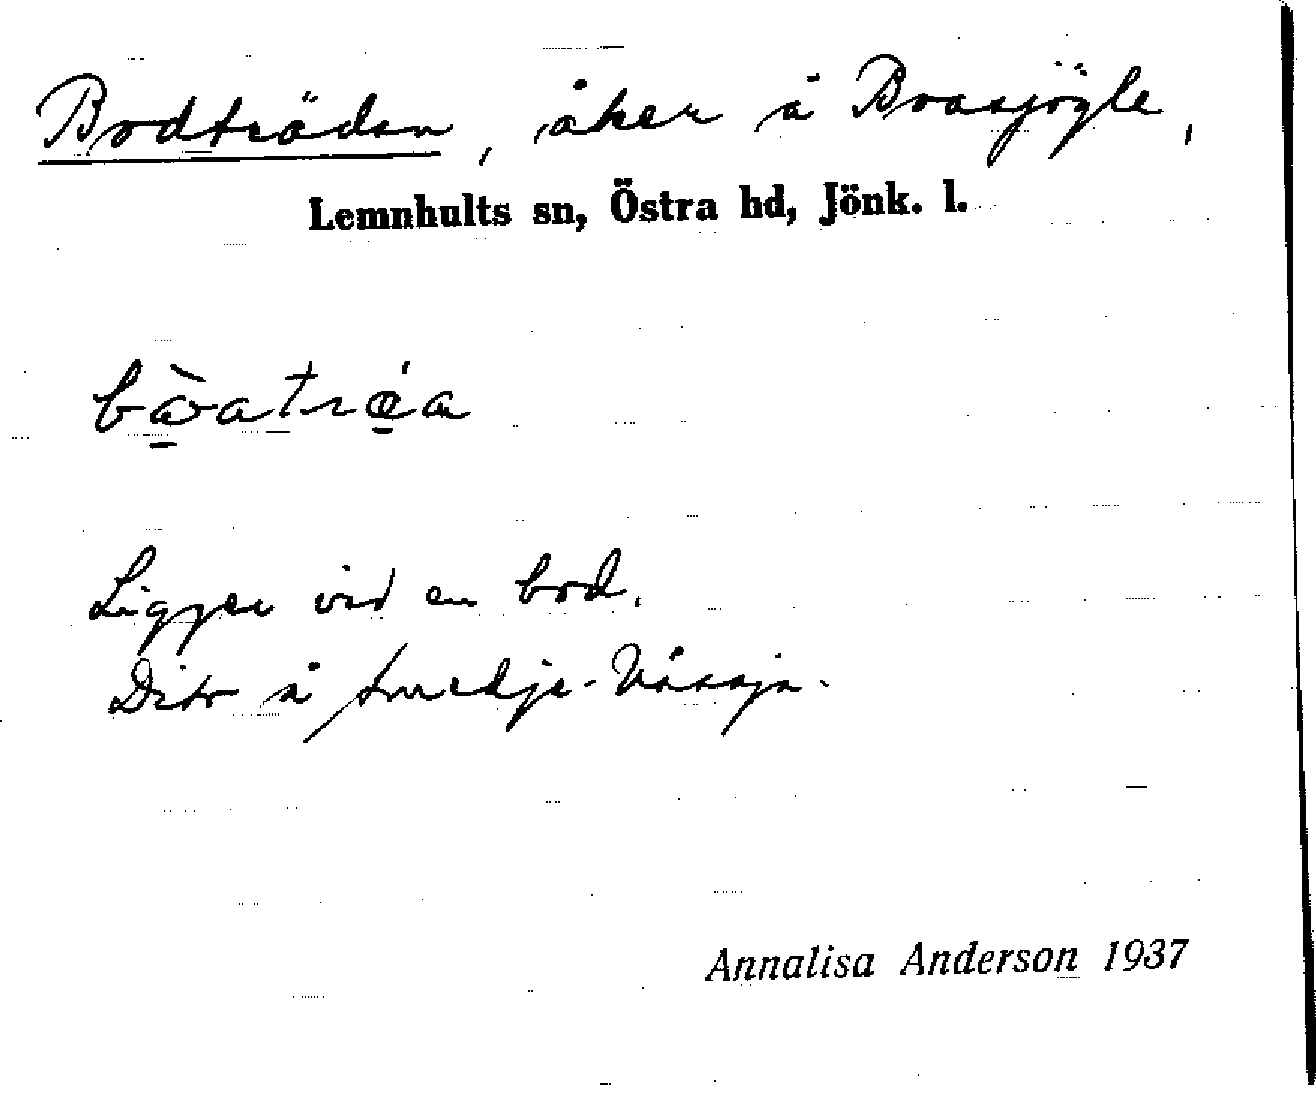 Bodträdan, åker å Boasjögle,
Lemnhults sn, Östra hd, Jönk. l.
Ligger vid en bod.
Dito å Smedje-Våssja.
Annalisa Anderson 1937